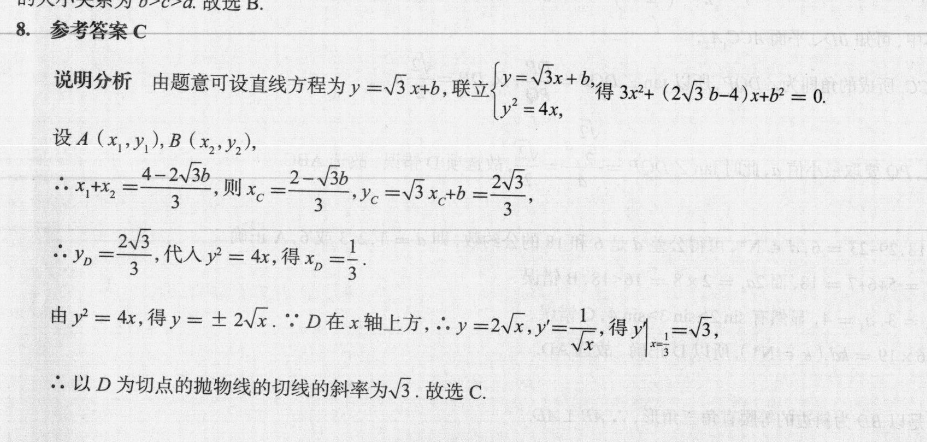 的大小关系为 b>c>a. 故选 B.
8. 参考答案 C
说明分析 由题意可设直线方程为 y =√3 x+b, 联立{y = √3x + b, y² = 4x, 得 3x²+ (2√3 b-4)x+b² = 0.
设 A (x₁,y₁), B (x₂,y₂),
∴ x₁+x₂ = (4-2√3b)/3, 则 x_C = (2-√3b)/3, y_C = √3 x_C+b = 2√3/3,
∴ y_D = 2√3/3, 代人 y² = 4x, 得 x_D = 1/3.
由 y² = 4x, 得 y = ± 2√x. ∵ D 在 x 轴上方, ∴ y =2√x, y'= 1/√x, 得 y'|x=1/3 =√3,
∴ 以 D 为切点的抛物线的切线的斜率为√3. 故选 C.